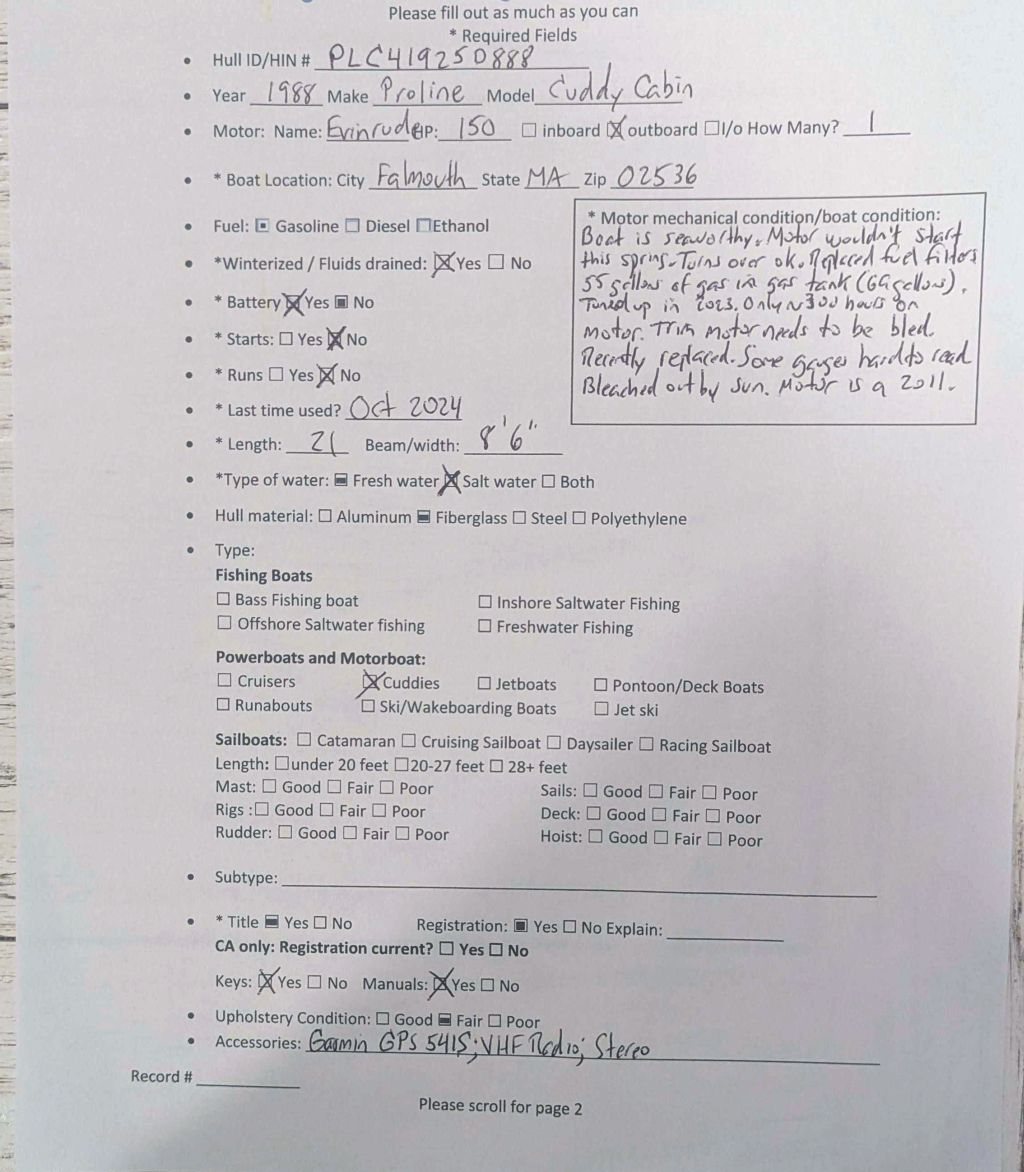 Please fill out as much as you can
* Required Fields
• Hull ID/HIN # PLC419250888
• Year 1988 Make Proline Model Cuddy Cabin
• Motor: Name: Evinrude HP: 150 ☐ inboard ☒ outboard ☐ I/o How Many? 1
• * Boat Location: City Falmouth State MA Zip 02536
• Fuel: ▣ Gasoline ☐ Diesel ☐ Ethanol
• *Winterized / Fluids drained: ☒ Yes ☐ No
• * Battery ☒ Yes ▣ No
• * Starts: ☐ Yes ☒ No
• * Runs ☐ Yes ☒ No
• * Last time used? Oct 2024
• * Length: 21 Beam/width: 8'6"
* Motor mechanical condition/boat condition:
Boat is seaworthy. Motor wouldn't start
this spring. Turns over ok. Replaced fuel filters
55 gallons of gas in gas tank (66 gallons).
Tuned up in 2023. Only ~300 hours on
motor. Trim motor needs to be bled.
Recently replaced. Some gauges hard to read
Bleached out by sun. Motor is a 2011.
• *Type of water: ▣ Fresh water ☒ Salt water ☐ Both
• Hull material: ☐ Aluminum ▣ Fiberglass ☐ Steel ☐ Polyethylene
• Type:
Fishing Boats
☐ Bass Fishing boat ☐ Inshore Saltwater Fishing
☐ Offshore Saltwater fishing ☐ Freshwater Fishing
Powerboats and Motorboat:
☐ Cruisers ☒ Cuddies ☐ Jetboats ☐ Pontoon/Deck Boats
☐ Runabouts ☐ Ski/Wakeboarding Boats ☐ Jet ski
Sailboats: ☐ Catamaran ☐ Cruising Sailboat ☐ Daysailer ☐ Racing Sailboat
Length: ☐ under 20 feet ☐ 20-27 feet ☐ 28+ feet
Mast: ☐ Good ☐ Fair ☐ Poor Sails: ☐ Good ☐ Fair ☐ Poor
Rigs : ☐ Good ☐ Fair ☐ Poor Deck: ☐ Good ☐ Fair ☐ Poor
Rudder: ☐ Good ☐ Fair ☐ Poor Hoist: ☐ Good ☐ Fair ☐ Poor
• Subtype:
• * Title ▣ Yes ☐ No Registration: ▣ Yes ☐ No Explain:
CA only: Registration current? ☐ Yes ☐ No
Keys: ☒ Yes ☐ No Manuals: ☒ Yes ☐ No
• Upholstery Condition: ☐ Good ▣ Fair ☐ Poor
• Accessories: Garmin GPS 541S; VHF Radio; Stereo
Record #
Please scroll for page 2